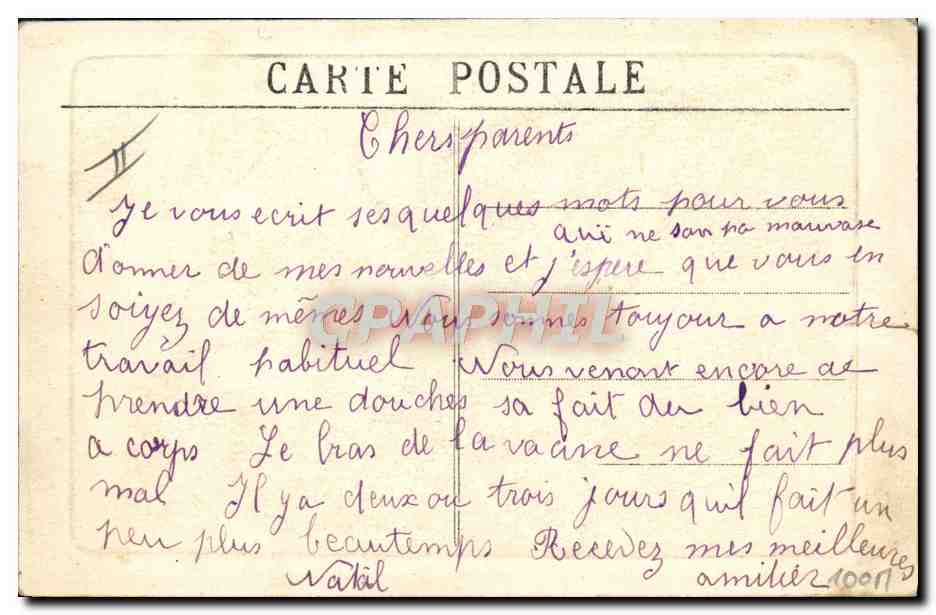 CARTE POSTALE
Chers parents
II
Je vous ecrit ses quelques mots pour vous
qui ne son pa mauvase
donner de mes nouvelles et j'espere que vous en
soiyez de mêmes Nous sommes toujour a notre
travail habituel Nous venont encore de
prendre une douches sa fait du bien
a corps Le bras de la vacine ne fait plus
mal Il y a deux ou trois jours qu'il fait un
peu plus beautemps Recevez mes meilleures
Natal amitiér 100M
CPAPHIL